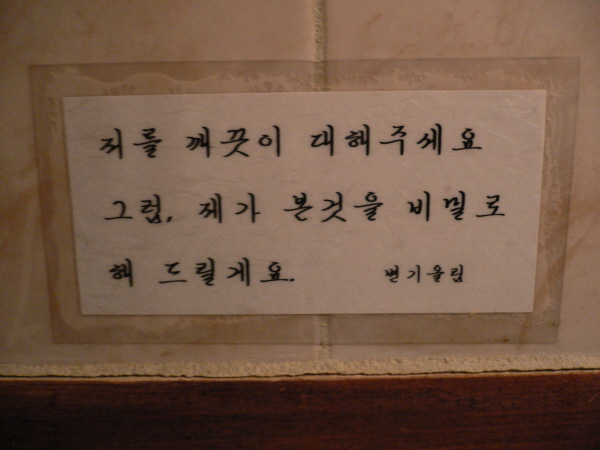 저를 깨끗이 대해주세요
그럼, 제가 본것을 비밀로
해 드릴게요. 변기올림